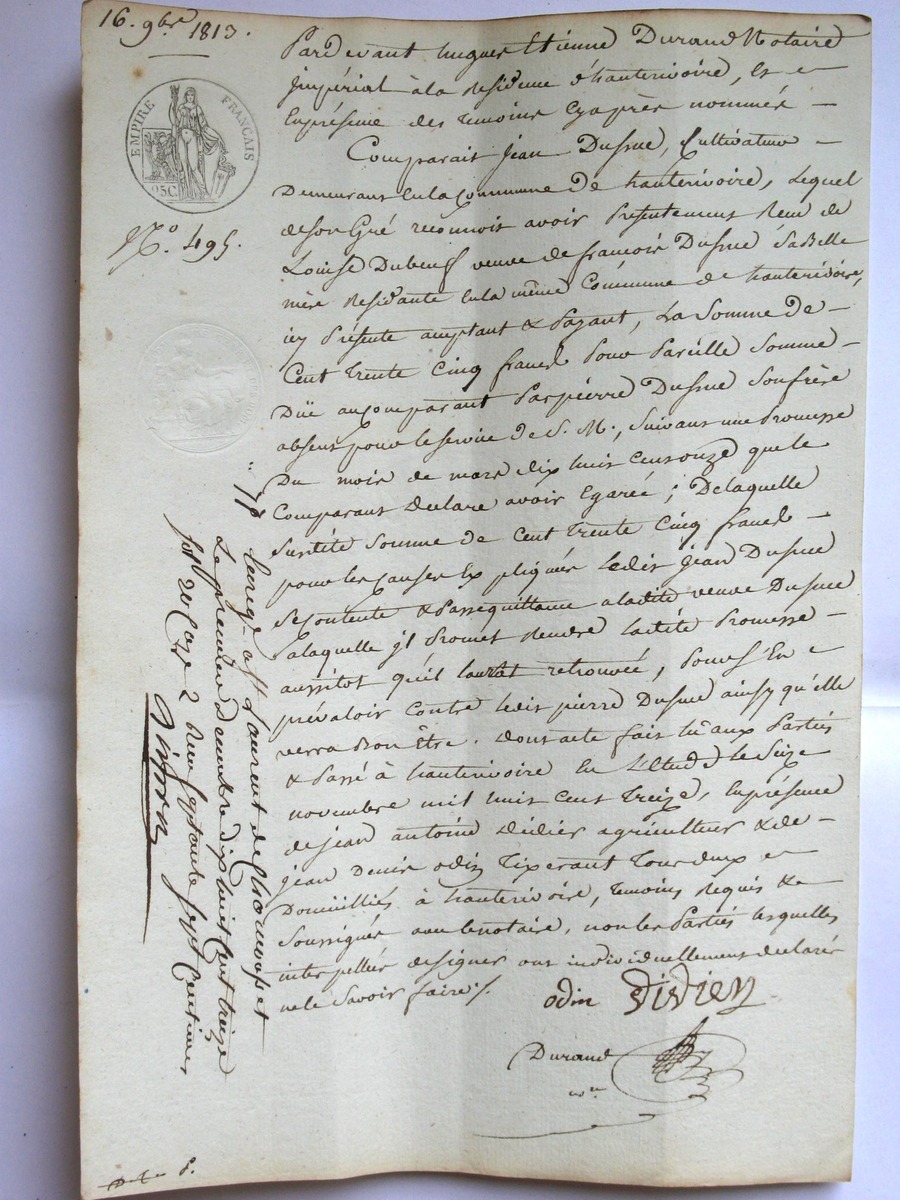 16. 9bre 1813.
EMPIRE FRANÇAIS
25C
No. 495.
Pardevant hugues Etienne Durand Notaire
jmpérial à la Residence d'hauterivoire, Et en
Enprésence des temoins Cyaprès nommés —
Comparait jean Dusnué, Cultivateur —
Demeurant Enla Commune De hauterivoire, Lequel
deson Gré reconnoit avoir Présentement Reçu de
Louise Dubeuf veuve de francois Dusnué saBelle
mère Residante Enla même Commune de hauterivoire,
icy Présente aceptant & Payant, La Somme De —
Cent trente Cinq francs Pour Pareille Somme —
Düe aucomparant Parpierre Dusnué Sonfrère
absent pour leservice De S. M., Suivant une Promesse
Du mois de mars dix huit Cent onze que le
Comparant declare avoir Egarée ; Delaquelle
Susdite Somme de Cent trente Cinq francs —
pour les Causes Expliquées Ledit jean Dusnué
Secontente & Passequittance aladite veuve Dusnué
alaquelle jl Promet Rendre ladite Promesse —
aussitot qu'il laurat retrouvée, Pour S'En —
prévaloir Contre ledit pierre Dusnué ainsy qu'elle
verra Bon Être. Dont acte fait lû aux Parties
& Passé à hauterivoire En L'Etude le Seize
novembre mil huit Cent Treize, Enprésence
de jean antoine Didier agriculteur & de —
jean Denis odin Tixerant Tous deux —
Domicilliés à hauterivoire, temoins Requis &
Soussignés avec lenotaire, nonles Parties lesquelles
interpellées designer ont individuellement declarés
nele Savoir faire ./.
odin Didier
Durand
nre
Enregt. a St Laurent de Chamousset
Le premier decembre dix huit Cent treize
fol. 20 Case 2 Reçu Septante sept Centimes